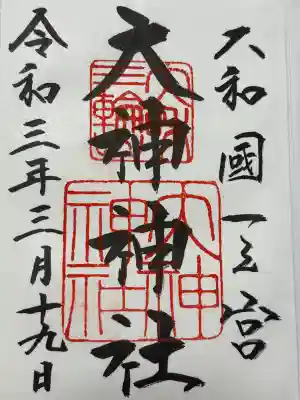 大和國一之宮
大神神社
令和三年三月十九日
三輪
大神
神社